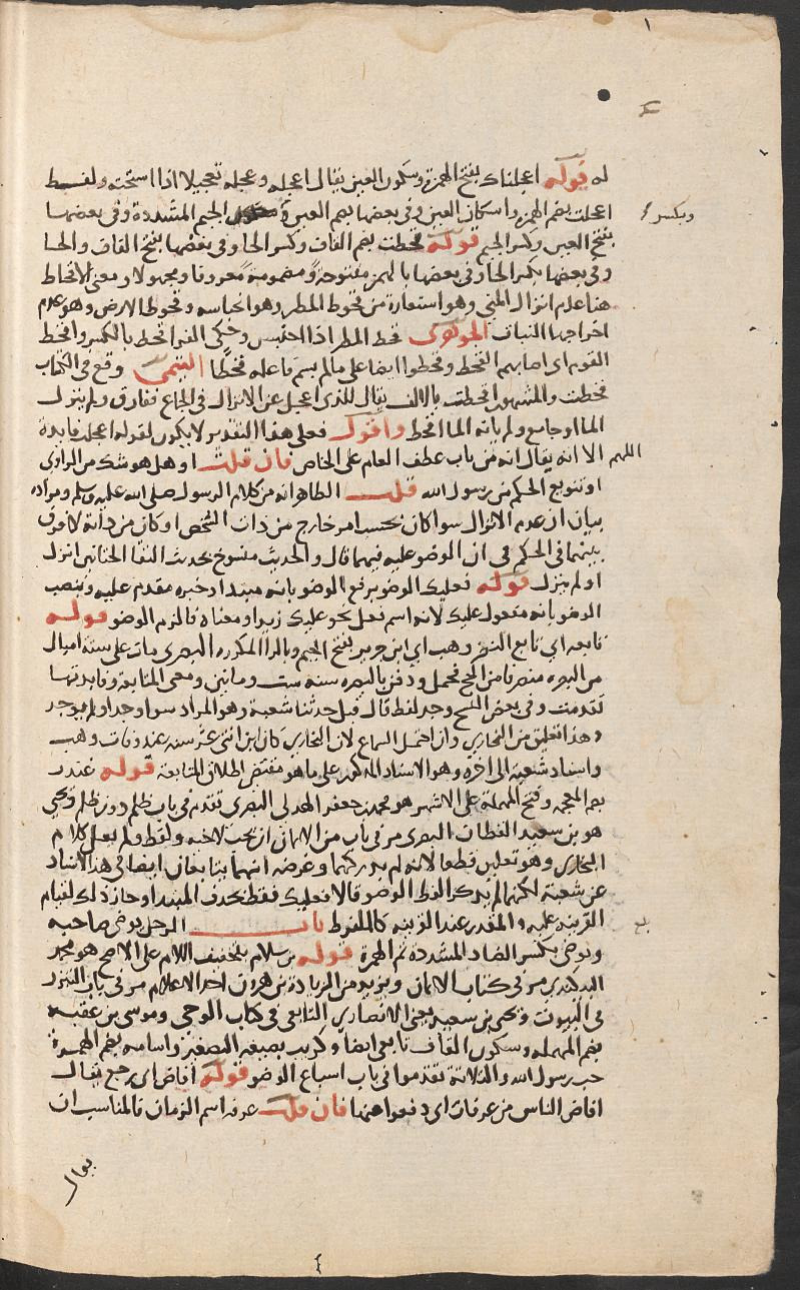 له قوله اعجلناك بفتح الهمزة وسكون العين يقال اعجله وعجله تعجيلا اذا استحثه ولفظ
اعجلت بضم الهمزة واسكان العين وفي بعضها بضم العين وكسر الجيم المشددة وفي بعضها
وبكسر
بفتح العين وكسر الجيم قوله قحطت بضم القاف وكسر الحا وفي بعضها بفتح القاف والحا
وفي بعضها بكسر الحا وفي بعضها بالهمز مفتوحة ومضمومة معروفا ومجهولا ومعنى الاقحاط
هنا عدم انزال المني وهو استعارة من قحوط المطر وهو انحباسه وقحوط الارض وهو عدم
اخراجها النبات الجوهري قحط المطر اذا احتبس وحكى الفرا قحط بالكسر واقحط
القوم اي اصابهم القحط وقحطوا ايضا على ما لم يسم فاعله قحطا التيمي وقع في الكتاب
قحطت والمشهور اقحطت بالالف يقال للذي اعجل عن الانزال في الجماع ففارق ولم ينزل
الما او جامع ولم ياته الما اقحط واقول فعلى هذا التقدير لا يكون لقوله اعجلت فايدة
اللهم الا انه يقال انه من باب عطف العام على الخاص فان قلت او هل هو شك من الراوي
او تنويع الحكم من رسول الله قلت الظاهر انه من كلام الرسول صلى الله عليه وسلم ومراده
بيان ان عدم الانزال سوا كان بحسب امر خارج من ذات الشخص او كان من ذاته لا فرق
بينهما في الحكم في ان الوضو عليه فيهما قال والحديث منسوخ بحديث التقا الختانين انزل
او لم ينزل قوله فعليك الوضو برفع الوضو بانه مبتدا وخبره مقدم عليه وبنصب
الوضو بانه مفعول عليك لانه اسم فعل نحو عليك زيدا ومعناه فالزم الوضو قوله
تابعه اي تابع النضر وهب اي ابن جرير بفتح الجيم وبالرا المكررة البصري مات على ستة اميال
من البصرة منصرفا من الحج فحمل ودفن بالبصرة سنة ست ومائتين ومعنى المتابعة وفايدتها
تقدمت وفي بعض النسخ وجد لفظ قال قبل حدثنا شعبة وهو المراد سوا وجد او لم يوجد
وهذا تعليق من البخاري وان احتمل السماع لان البخاري كان ابن اثنتي عشر سنة عند وفات وهب
واسناد شعبة الى اخره وهو الاسناد المذكور على ما هو مقتضى اطلاق المتابعة قوله غندر
بضم المعجمة وفتح المهملة على الاشهر هو محمد بن جعفر الهذلي البصري تقدم في باب ظلم دون ظلم ويحيى
هو بن سعيد القطان البصري مر في باب من الايمان ان يحب لاخيه ولفظ ولم يقل كلام
البخاري وهو تعليق قطعا لانه لم يدركهما وغرضه انهما يتابعان ايضا في هذا الاسناد
عن شعبة لكنهما لم يذكرا لفظ الوضو قالا فعليك فقط بحذف المبتدا وجاز ذلك لقيام
القرينة عليه والمقدر عند القرينة كالملفوظ باب الرجل يوضي صاحبه
ويوضي بكسر الضاد المشددة ثم الهمزة قوله بن سلام بتخفيف اللام على الاصح هو محمد
البيكندي مر في كتاب الايمان ويزيد من الزيادة بن هرون احد الاعلام مر في باب التبرز
في البيوت ويحيى بن سعيد يعني الانصاري التابعي في كتاب الوحي وموسى بن عقبة
بضم المهملة وسكون القاف تابعي ايضا وكريب بصيغة التصغير واسامه بضم الهمزة
حب رسول الله والثلاثة تقدموا في باب اسباغ الوضو قوله افاض اي رجع يقال
افاض الناس من عرفات اي دفعوا منها فان قلت عرفه اسم الزمان فالمناسب ان
يقال